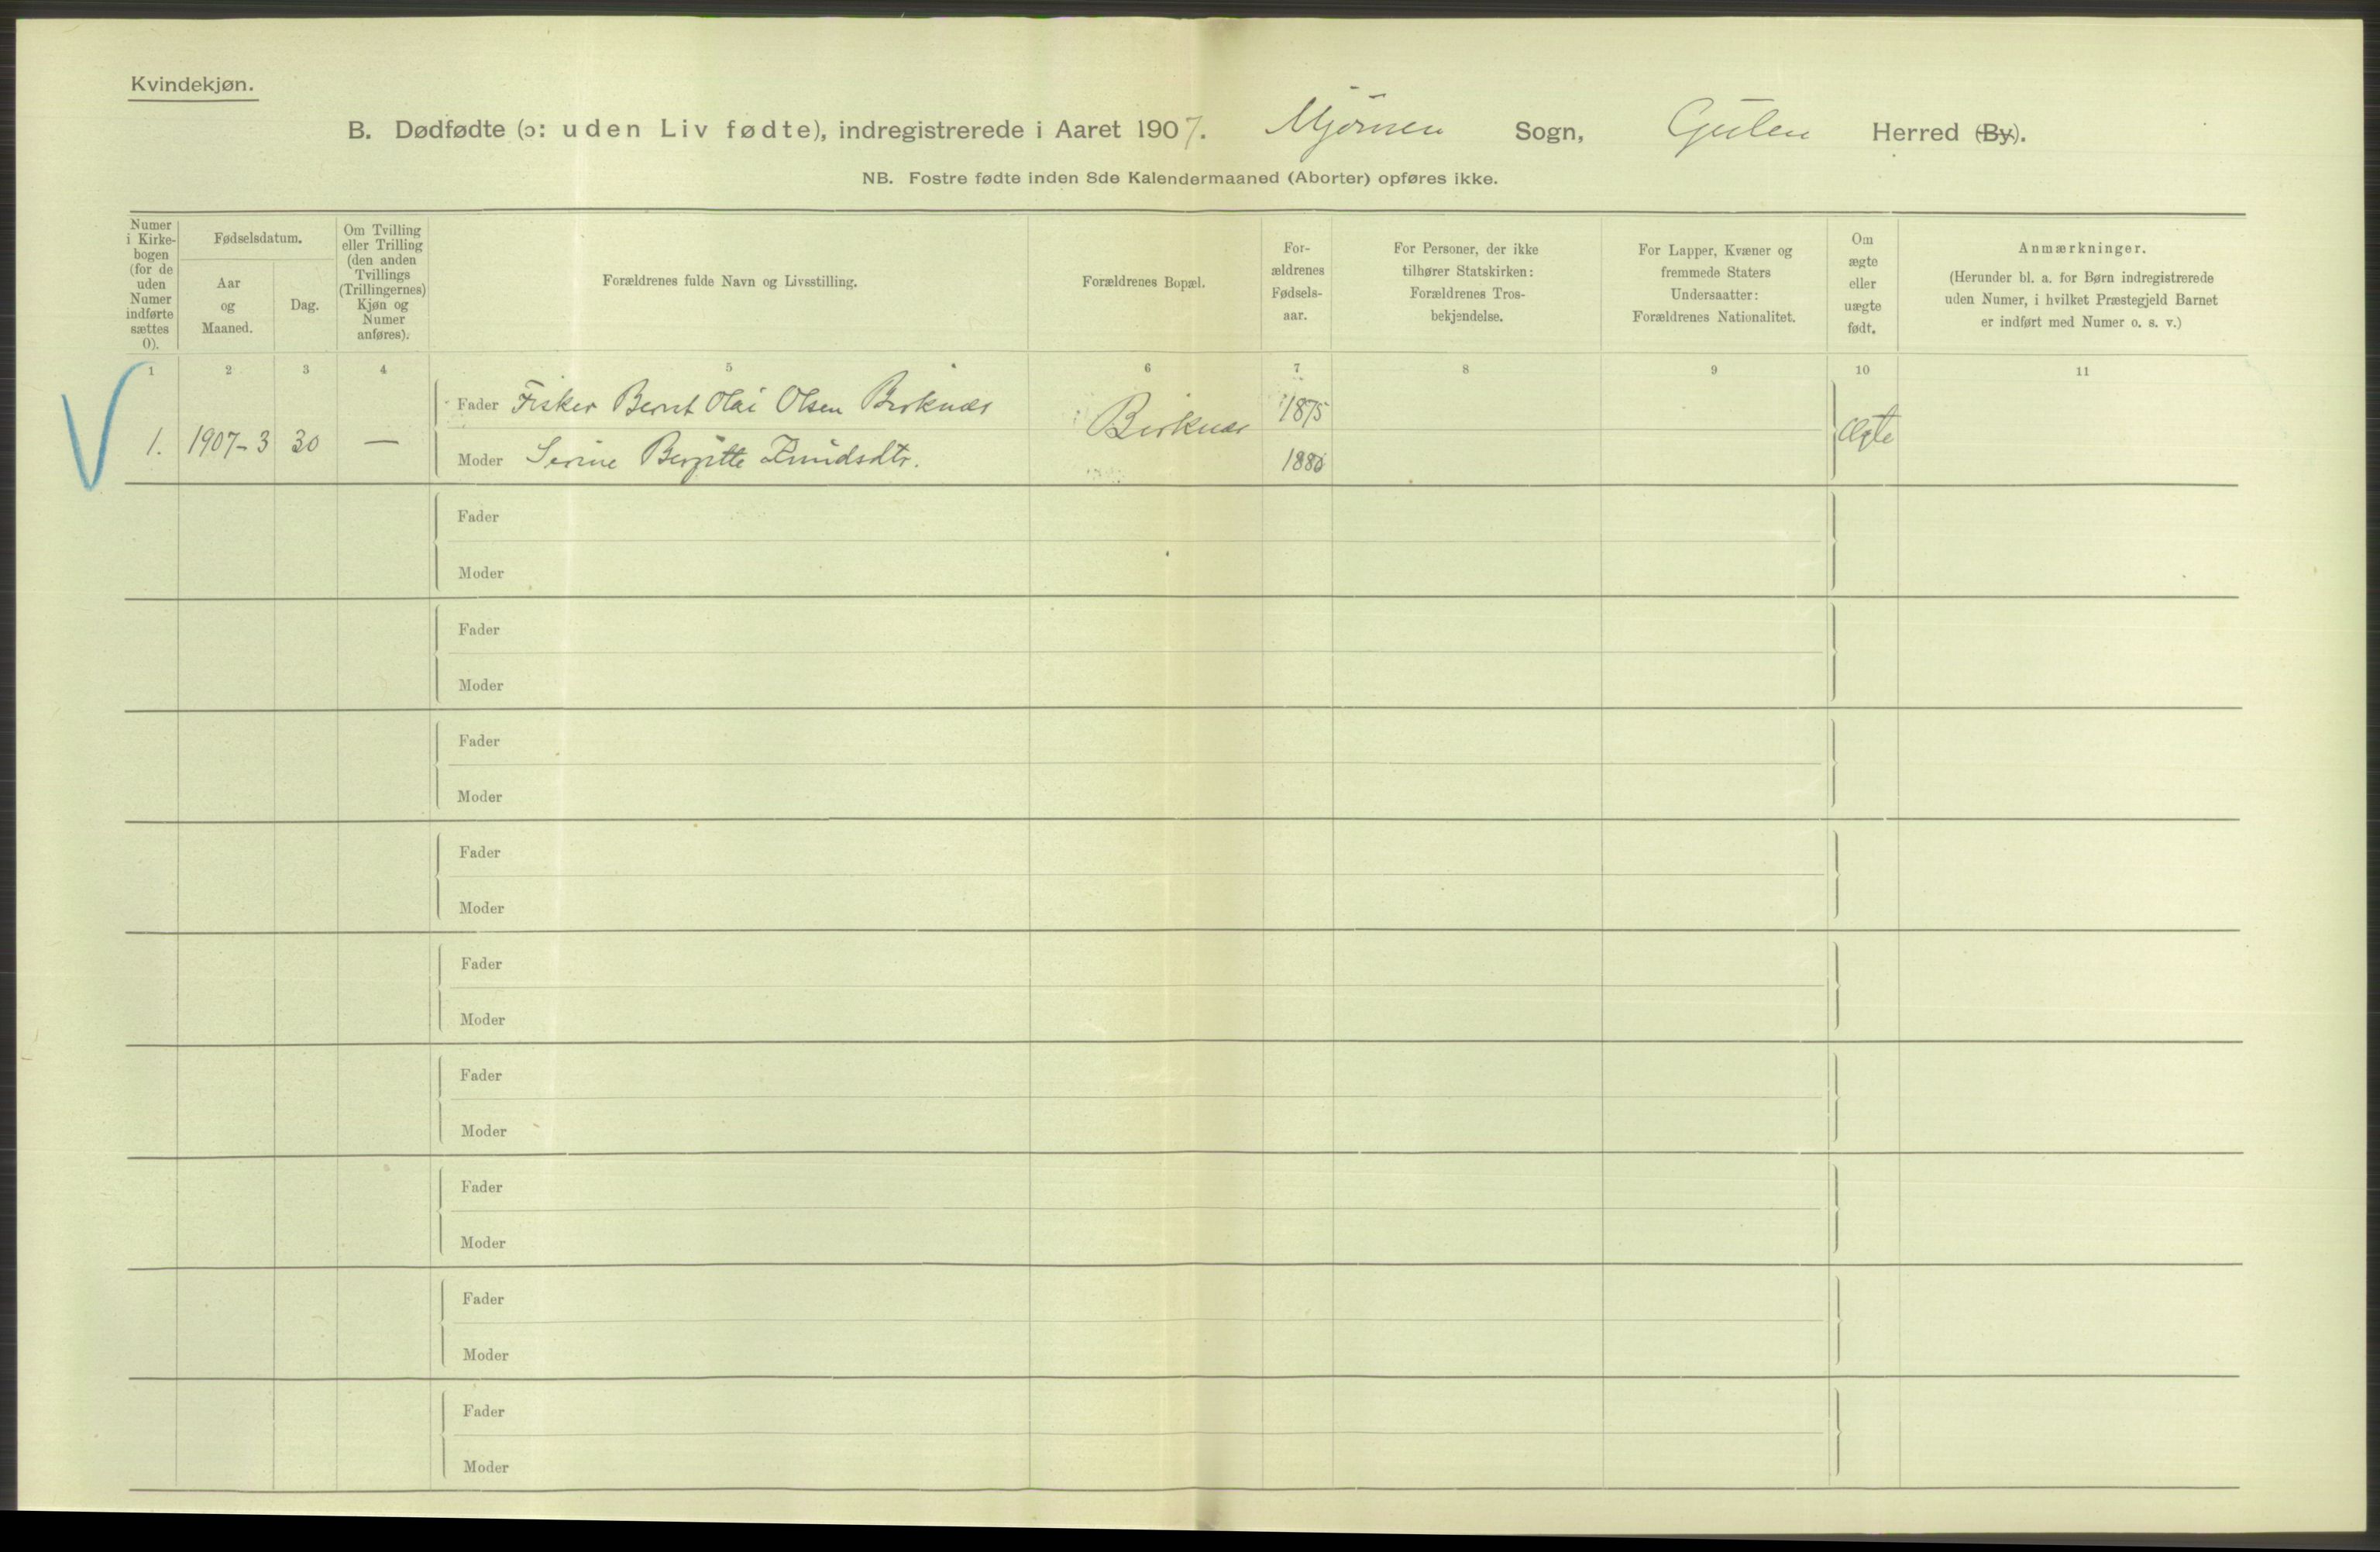 Kvindekjøn.
B. Dødfødte (ɔ: uden Liv fødte), indregistrerede i Aaret 1907. Mjømen Sogn, Gulen Herred (By).
NB. Fostre fødte inden 8de Kalendermaaned (Aborter) opføres ikke.
Numer
i Kirke-
bogen
(for de
uden
Numer
indførte
sættes
0).
Fødselsdatum.
Aar
og
Maaned.
Dag.
Om Tvilling
eller Trilling
(den anden
Tvillings
(Trillingernes)
Kjøn og
Numer
anføres).
Forældrenes fulde Navn og Livsstilling.
Forældrenes Bopæl.
For-
ældrenes
Fødsels-
aar.
For Personer, der ikke
tilhører Statskirken:
Forældrenes Tros-
bekjendelse.
For Lapper, Kvæner og
fremmede Staters
Undersaatter:
Forældrenes Nationalitet.
Om
ægte
eller
uægte
født.
Anmærkninger.
(Herunder bl. a. for Børn indregistrerede
uden Numer, i hvilket Præstegjeld Barnet
er indført med Numer o. s. v.)
1 2 3 4 5 6 7 8 9 10 11
Fader Fisker Bernt Olai Olsen Birknæs 1875
1. 1907-3 30 — Birknæs Ægte
Moder Serine Bergitte 1880
Fader
Moder
Fader
Moder
Fader
Moder
Fader
Moder
Fader
Moder
Fader
Moder
Fader
Moder
Fader
Moder
Fader
Moder